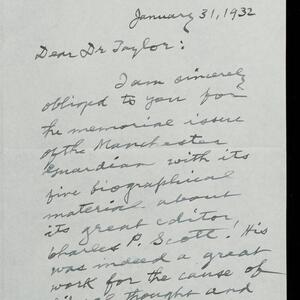 January 31, 1932
Dear Dr Taylor:
I am sincerely
obliged to you for
the memorial issue
of the Manchester
Guardian with its
fine biographical
material about
its great editor,
Charles P. Scott! His
was indeed a great
work for the cause of
liberal thought and